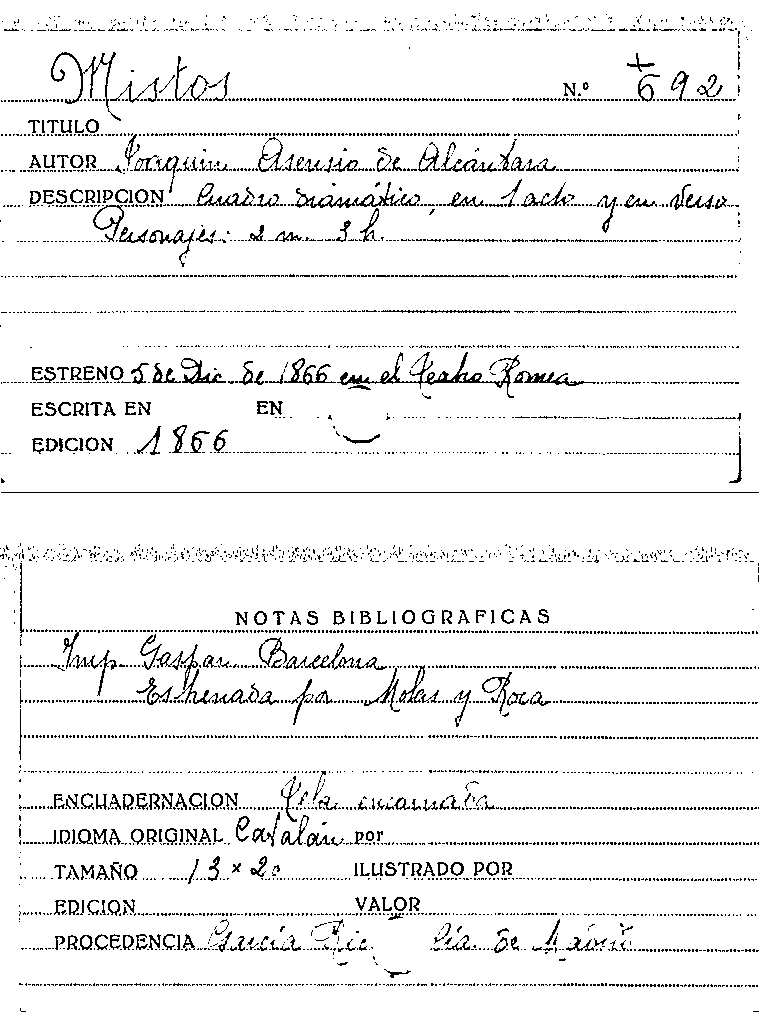 Mistos
N.º 692
TITULO
AUTOR Joaquin Asensio de Alcántara
DESCRIPCION Cuadro dramático, en 1 acto y en verso
Personajes: 2 m. 3 h.
ESTRENO 5 de Dic. de 1866 en el Teatro Romea
ESCRITA EN EN
EDICION 1866
NOTAS BIBLIOGRAFICAS
Imp. Gaspar. Barcelona
Estrenada por Molas y Roca
ENCUADERNACION Tela encarnada
IDIOMA ORIGINAL Catalán por
TAMAÑO 13 x 20 ILUSTRADO POR
EDICION VALOR
PROCEDENCIA García Ric Cía. de Madrid